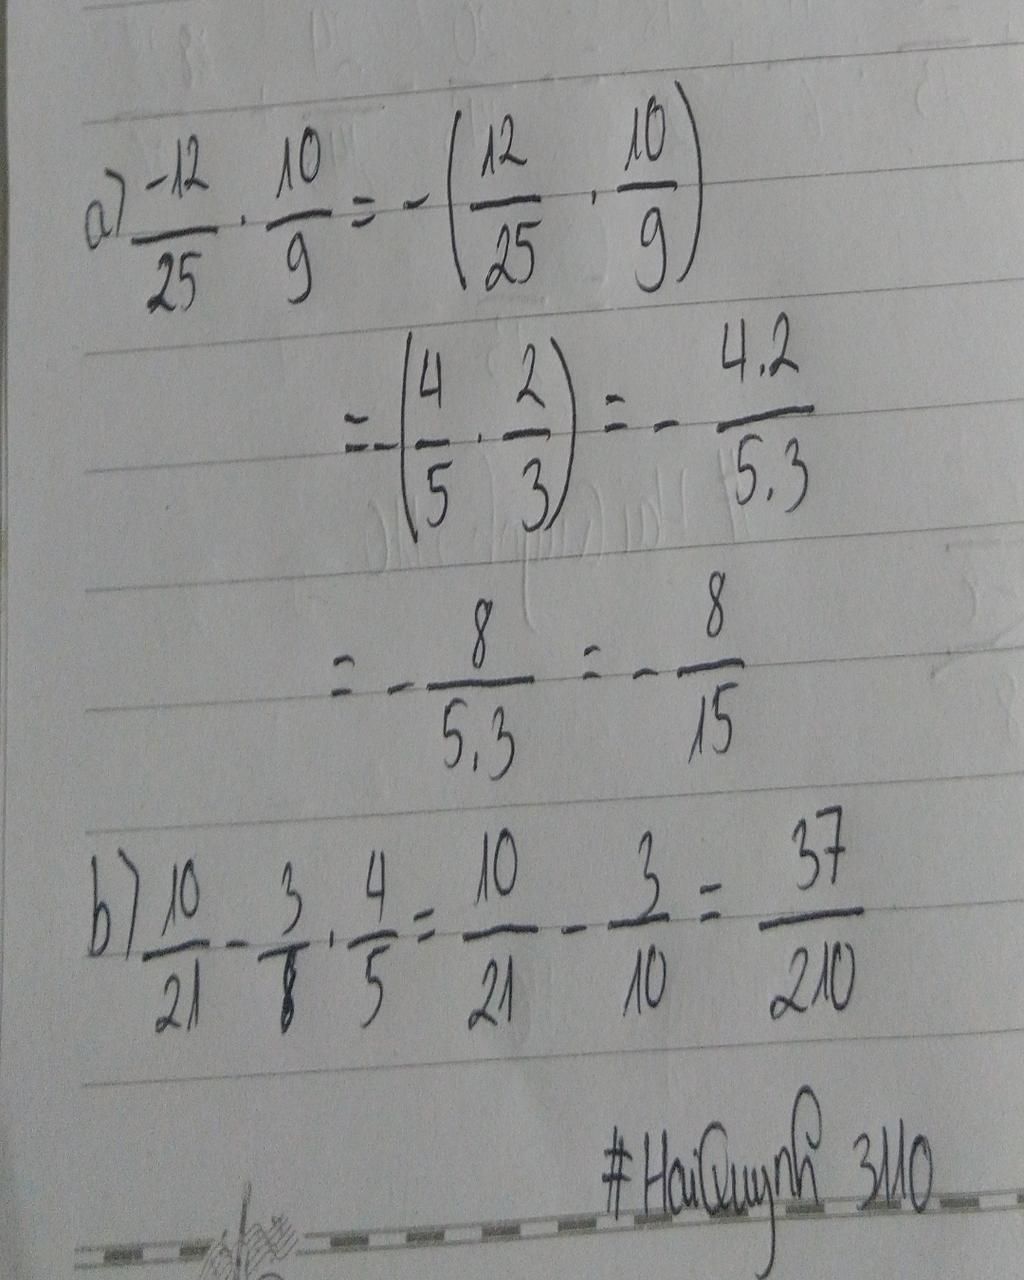 a) -12/25 . 10/9 = - (12/25 . 10/9)
= - (4/5 . 2/3) = - 4.2/5.3
= - 8/5.3 = - 8/15
b) 10/21 - 3/8 . 4/5 = 10/21 - 3/10 = 37/210
#HaiQuynh 3110